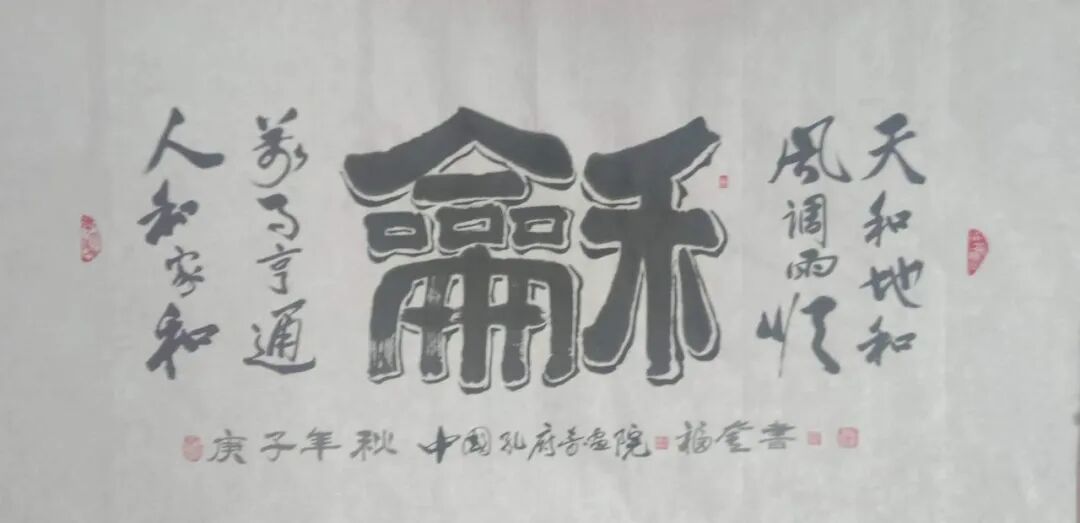 天和地和
風调雨顺
龢
萬事亨通
人和家和
庚子年秋 中國孔府書畫院 福書